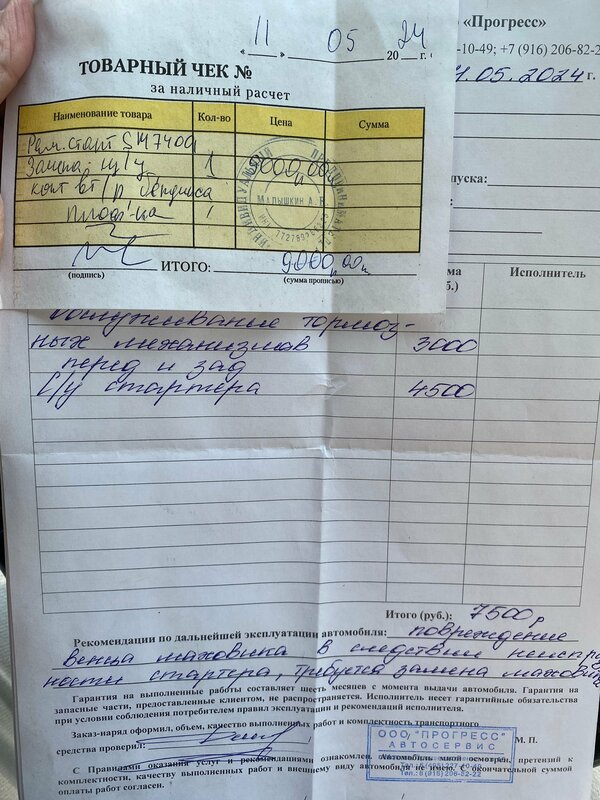 «Прогресс»
« 11 » 05 2024 г.
-10-49; +7 (916) 206-82-2
ТОВАРНЫЙ ЧЕК №
.05.2024 г.
за наличный расчет
Наименование товара Кол-во Цена Сумма
Рем. старт SM7400
Замена: щ/у 1 9000,00
конт вт/р бендикса
пуска:
МАЛЫШКИН А. В.
(подпись) ИТОГО: 9000,00 (сумма прописью)
Исполнитель
обслуживание тормоз-
ных механизмов 3000
перед и зад
С/у стартера 4500
Итого (руб.): 7500 р
Рекомендации по дальнейшей эксплуатации автомобиля: повреждение
венца маховика в следствии неиспр
ности стартера, требуется замена махови
Гарантия на выполненные работы составляет шесть месяцев с момента выдачи автомобиля. Гарантия на
запасные части, предоставленные клиентом, не распространяется. Исполнитель несет гарантийные обязательства
при условии соблюдения потребителем правил эксплуатации и рекомендаций исполнителя.
Заказ-наряд оформил, объем, качество выполненных работ и комплектность транспортного
средства проверил: М. П.
ООО "ПРОГРЕСС"
АВТОСЕРВИС
С Правилами оказания услуг и рекомендациями ознакомлен. Автомобиль мной осмотрен, претензий к
комплектности, качеству выполненных работ и внешнему виду автомобиля не имею. С окончательной суммой
оплаты работ согласен.